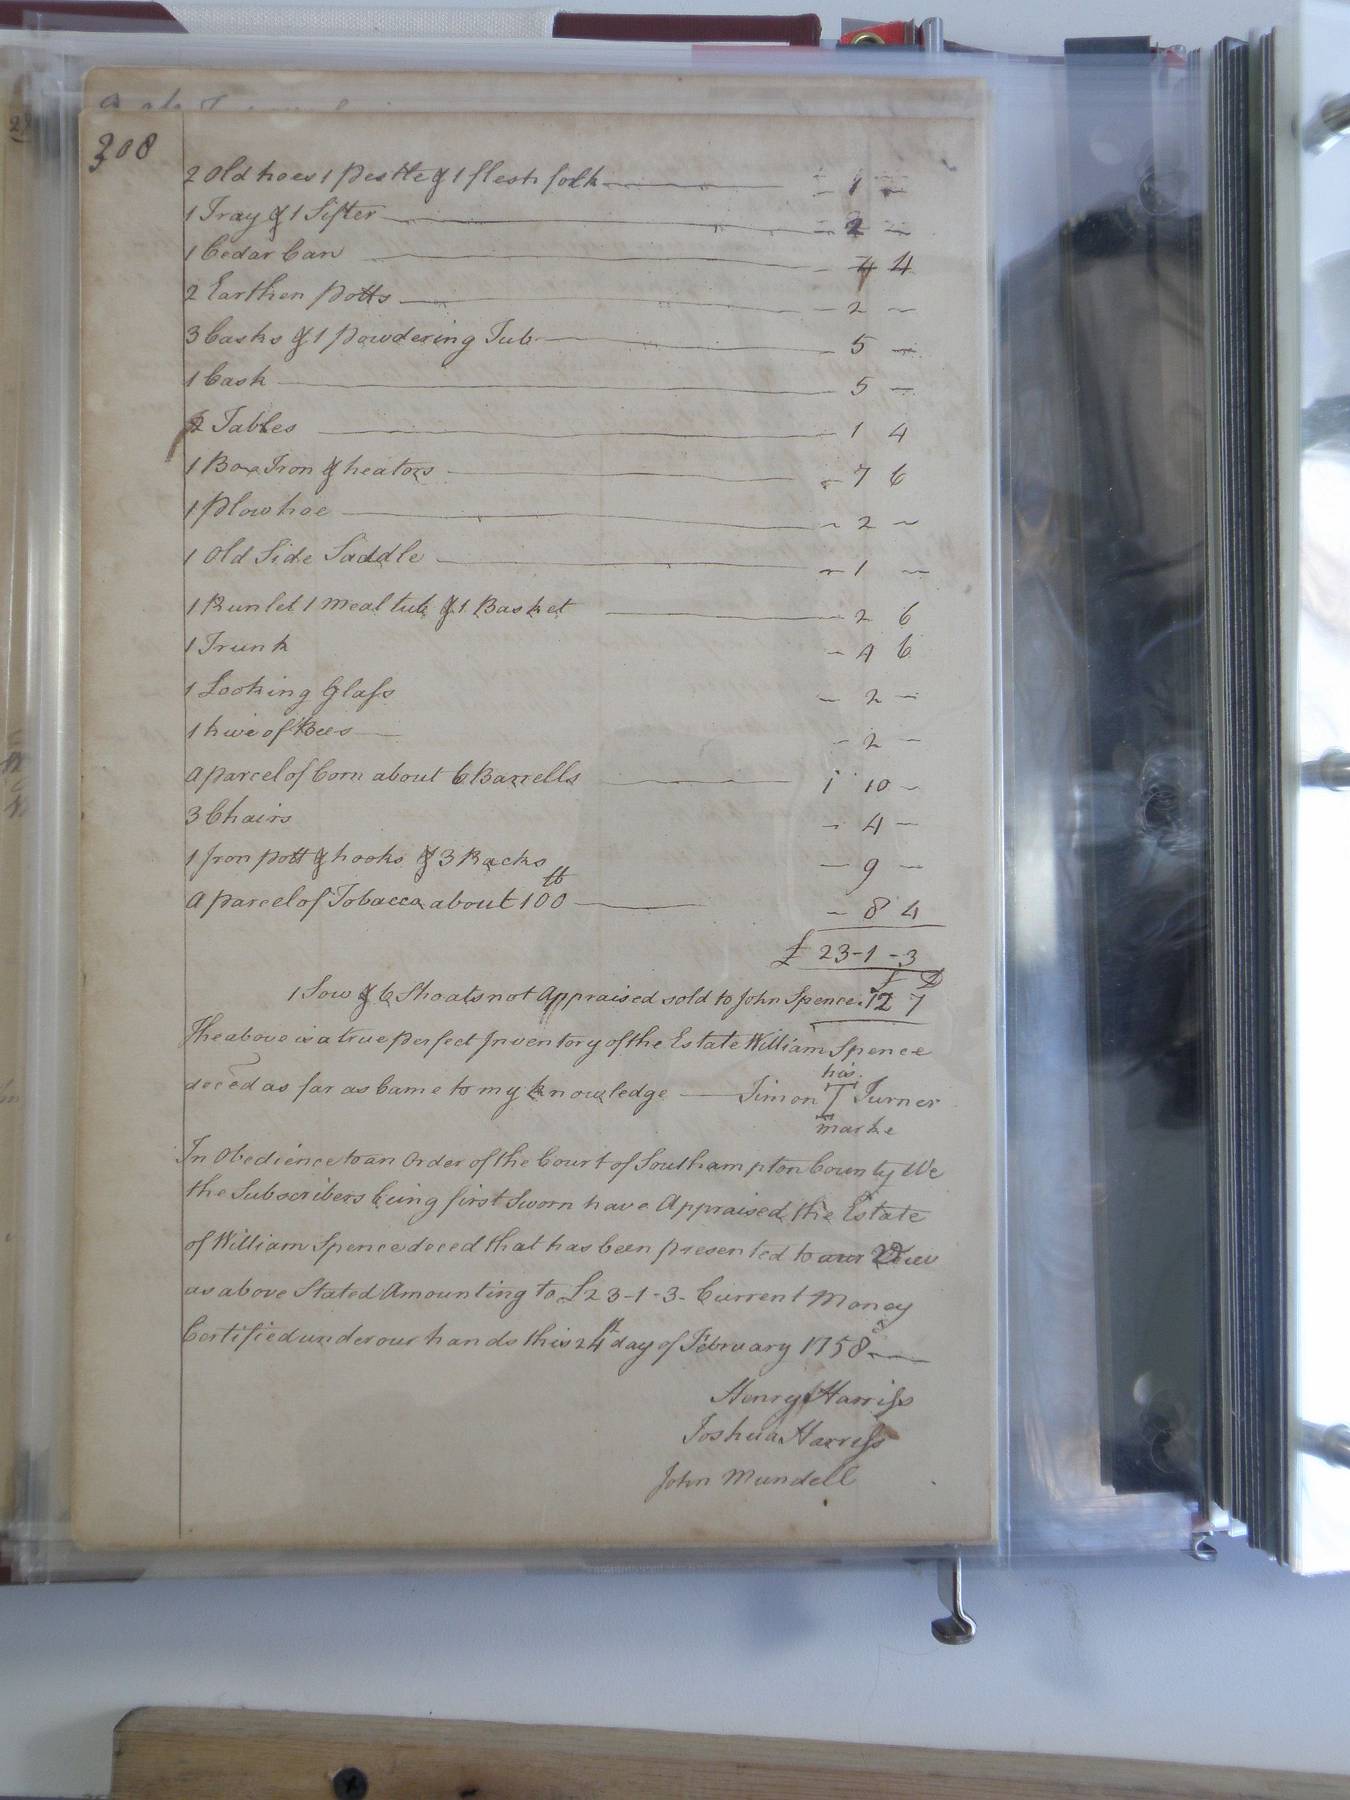 308
2 Old hoes 1 Pestle & 1 flesh fork - 1 -
1 Tray & 1 Sifter - 2 -
1 Cedar Can - 4 4
2 Earthen Potts - 2 -
3 Casks & 1 Powdering Tub - 5 -
1 Cask - 5 -
2 Tables - 1 4
1 Box Iron & heators - 7 6
1 Plow hoe - 2 -
1 Old Side Saddle - 1 -
1 Runlet 1 meal tub & 1 Basket 2 6
1 Trunk - 4 6
1 Looking Glass - 2 -
1 hive of Bees - 2 -
A parcel of Corn about 6 Barrells 1 10 -
3 Chairs - 4 -
1 Iron pott & hooks & 3 Racks - 9 -
A parcel of Tobacco about 100 lb - 8 4
£ 23-1-3
S D
1 Sow & 6 Shoats not Appraised sold to John Spence. 12 7
The above is a true perfect Inventory of the Estate William Spence
deced as far as Came to my knowledge Simon his T marke Turner
In Obedience to an Order of the Court of Southampton County We
the Subscribers being first Sworn have Appraised the Estate
of William Spence deced that has been presented to our View
as above Stated Amounting to £23-1-3- Current Money
Certified under our hands this 24th day of February 1758
Henry Harriss
Joshua Harriss
John Mundell